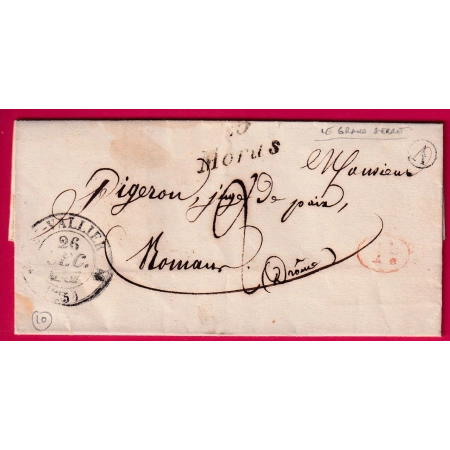 LE GRAND SERRE
25
Moras
A
Monsieur
Pigeron, juge de paix,
2
Romans
(Drôme)
ST-VALLIER
26
DEC.
(25)
10